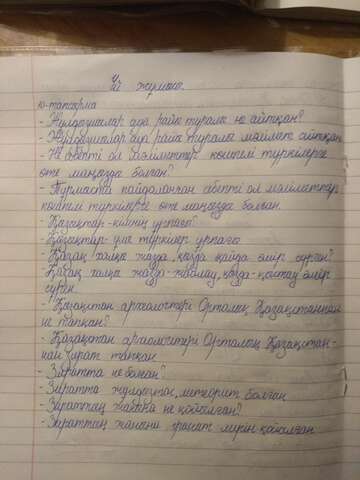 Үй жұмысы.
10-тапсырма
- Жұлдызшылар ауа райы туралы не айтқан?
- Жұлдызшылар ауа райы туралы мәлімет айтқан
- Не себепті ол мәліметтер көшпелі түркілерге
өте маңызды болған?
- Тұрмыста пайдаланған себепті ол мәліметтер
көшпелі түркілерге өте маңызды болған.
- Қазақтар-кімнің ұрпағы?
Қазақтар-ұлы түркілер ұрпағы
- Қазақ халқы жазда, қызда қайда өмір сүрген?
Қазақ халқы жазда-жайлау, қызда-қыстау өмір
сүрген.
- Қазақстан археологтері Орталық Қазақстаннан
не тапқан?
- Қазақстан археологтері Орталық Қазақстан-
нан зират тапқан
- Зиратта не болған?
- Зиратта жұлдызтас, метеорит болған
- Зираттың жанына не қойылған?
- Зираттың жанына гранит қойылған